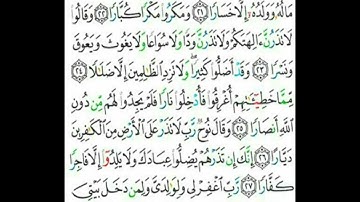 مَالُهُۥ وَوَلَدُهُۥٓ إِلَّا خَسَارًا ٢١ وَمَكَرُوا۟ مَكْرًا كُبَّارًا ٢٢ وَقَالُوا۟
لَا تَذَرُنَّ ءَالِهَتَكُمْ وَلَا تَذَرُنَّ وَدًّا وَلَا سُوَاعًا وَلَا يَغُوثَ وَيَعُوقَ
وَنَسْرًا ٢٣ وَقَدْ أَضَلُّوا۟ كَثِيرًا وَلَا تَزِدِ ٱلظَّٰلِمِينَ إِلَّا ضَلَٰلًا ٢٤
مِّمَّا خَطِيٓـَٰٔتِهِمْ أُغْرِقُوا۟ فَأُدْخِلُوا۟ نَارًا فَلَمْ يَجِدُوا۟ لَهُم مِّن دُونِ
ٱللَّهِ أَنصَارًا ٢٥ وَقَالَ نُوحٌ رَّبِّ لَا تَذَرْ عَلَى ٱلْأَرْضِ مِنَ ٱلْكَٰفِرِينَ
دَيَّارًا ٢٦ إِنَّكَ إِن تَذَرْهُمْ يُضِلُّوا۟ عِبَادَكَ وَلَا يَلِدُوٓا۟ إِلَّا فَاجِرًا
كَفَّارًا ٢٧ رَّبِّ ٱغْفِرْ لِى وَلِوَٰلِدَىَّ وَلِمَن دَخَلَ بَيْتِىَ